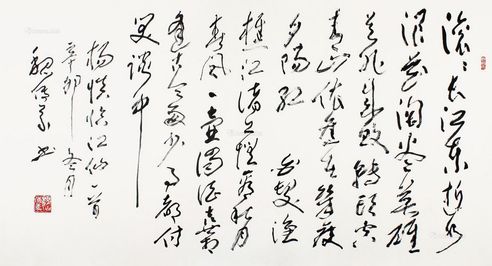 滚滚长江东逝水
浪花淘尽英雄
是非成败转头空
青山依旧在几度
夕阳红 白发渔
樵江渚上惯看秋月
春风一壶浊酒喜相
逢古今多少事都付
笑谈中
杨慎临江仙一首
辛卯冬月